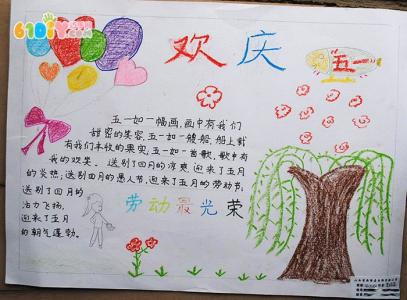 61DIY.com
欢庆
五一
五一如一幅画,画中有我们
甜蜜的笑容,五一如一艘船,船上载
有我们丰收的果实,五一如一首歌,歌中有
我的欢笑。送别了四月的凉爽,迎来了五月
的炎热,送别四月的愚人节,迎来了五月的劳动节,
送别了四月的
活力飞扬,
迎来了五月
的朝气蓬勃。
劳动最光荣